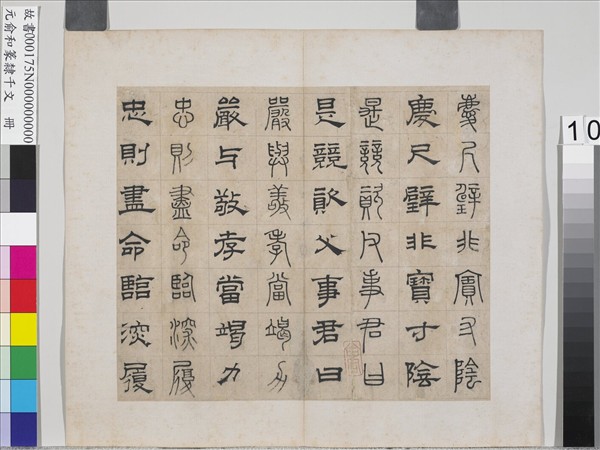 慶尺璧非寶寸陰
慶尺璧非寶寸陰
是競資父事君曰
是競資父事君曰
嚴與敬孝當竭力
嚴与敬孝當竭力
忠則盡命臨深履
忠則盡命臨深履
故書000175N000000000
元俞和篆隸千文 冊
10